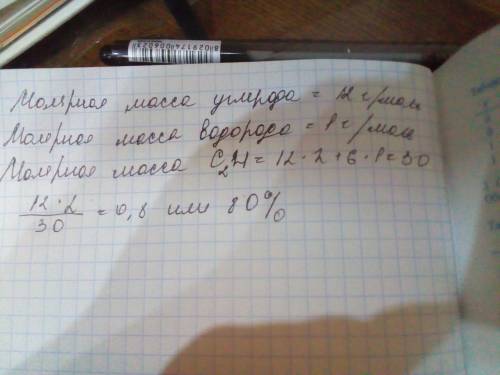 Молярная масса углерода = 12 г/моль
Молярная масса водорода = 1 г/моль
Молярная масса C₂H = 12 · 2 + 6 · 1 = 30
12 · 2 / 30 = 0,8 или 80%